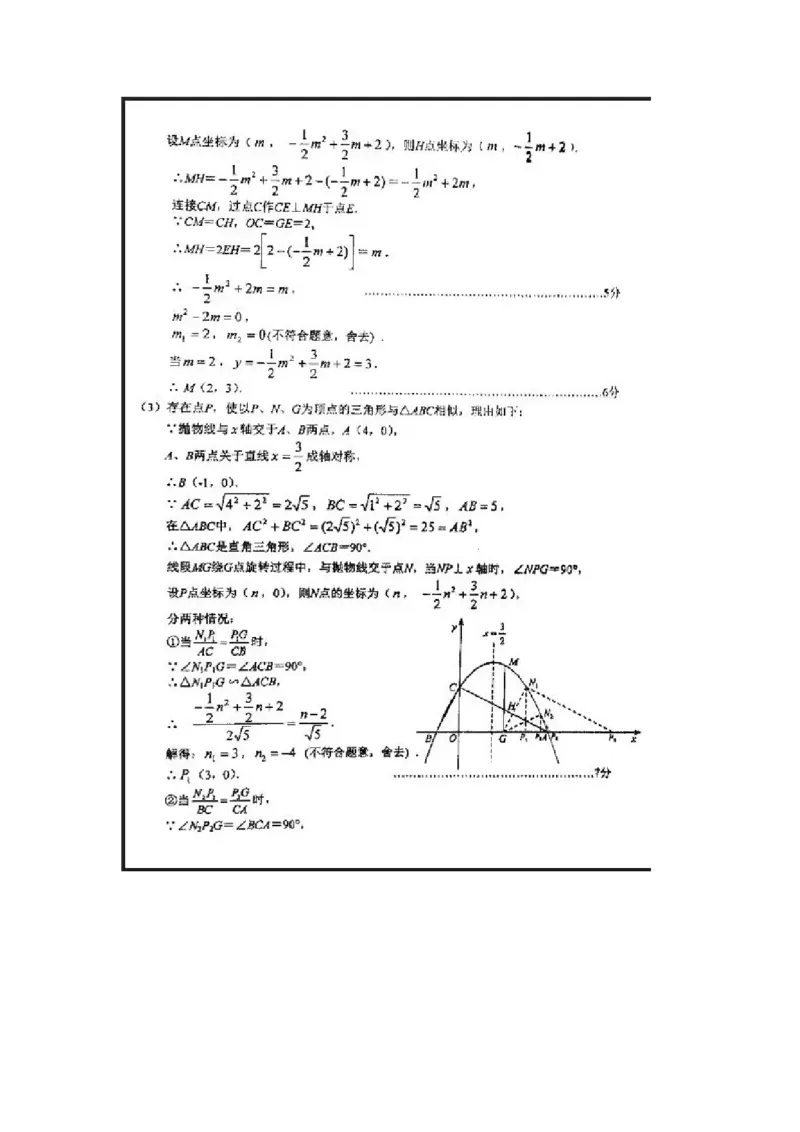 设M点坐标为(m, -1/2m²+3/2m+2),则H点坐标为(m, -1/2m+2).
∴MH=-1/2m²+3/2m+2-(-1/2m+2)=-1/2m²+2m,
连接CM,过点C作CE⊥MH于点E.
∵CM=CH,OC=GE=2,
∴MH=2EH=2[2-(-1/2m+2)]=m.
∴ -1/2m²+2m=m. ……5分
m²-2m=0,
m₁=2,m₂=0(不符合题意,舍去).
当m=2,y=-1/2m²+3/2m+2=3.
∴M(2,3). ……6分
(3)存在点P,使以P、N、G为顶点的三角形与△ABC相似,理由如下:
∵抛物线与x轴交于A、B两点,A(4,0),
A、B两点关于直线x=3/2成轴对称,
∴B(-1,0).
∵AC=√4²+2²=2√5,BC=√1²+2²=√5,AB=5,
在△ABC中,AC²+BC²=(2√5)²+(√5)²=25=AB²,
∴△ABC是直角三角形,∠ACB=90°.
线段MG绕G点旋转过程中,与抛物线交于点N,当NP⊥x轴时,∠NPG=90°,
设P点坐标为(n,0),则N点的坐标为(n, -1/2n²+3/2n+2),
分两种情况:
①当N₁P₁/AC=P₁G/CB时,
∵∠N₁P₁G=∠ACB=90°,
∴△N₁P₁G∽△ACB,
∴ (-1/2n²+3/2n+2)/2√5=(n-2)/√5.
解得:n₁=3,n₂=-4(不符合题意,舍去).
∴P₁(3,0). ……7分
②当N₂P₂/BC=P₂G/CA时,
∵∠N₂P₂G=∠BCA=90°,
y
x=3/2
M
C
N₁
H
N₂
B
O
G
P₁
A
x